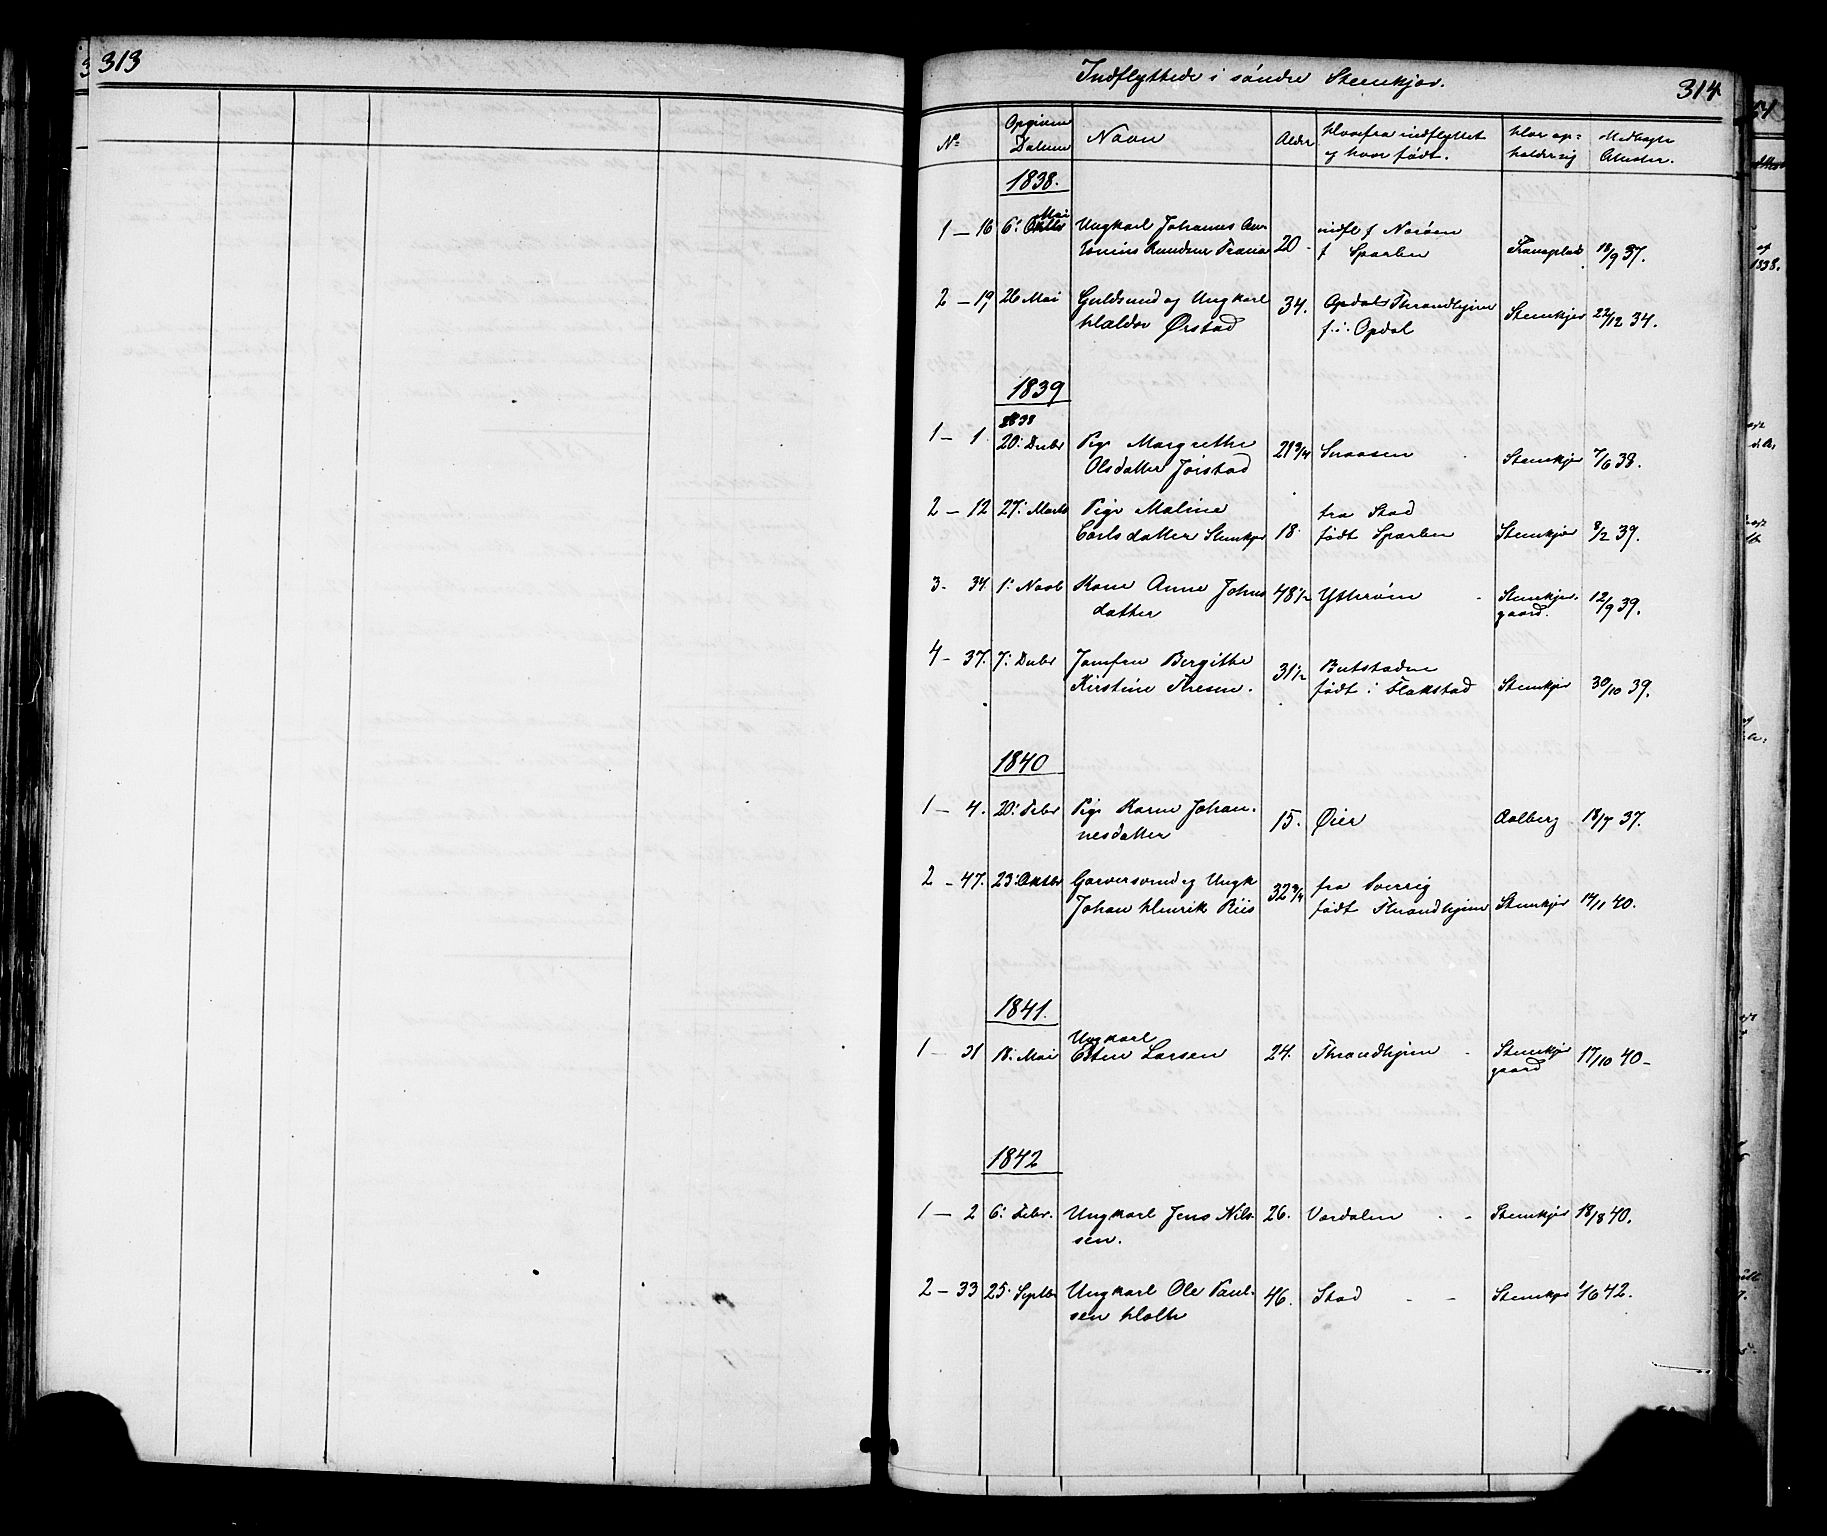 313
Indflyttede i søndre Stenkjær.
314
No
Opgivne
Datum
Navn
Alder
Hvorfra indflyttet
og hvor født.
Hvor op=
holder sig
Medbragte
Attester.
1838.
1 – 16 6: Mai Ungkarl Johannes An-
tonius Knudsen Trana 20 indfl f Nærøen
f Sparbu 18/9 37.
2 – 19 26 Mai Guldsmed og Ungkarl
Haldor Ørstad 34. Opdal Throndhjem
f. i. Opdal Stenkjær 22/12 34.
1839
1838
1 – 1 20: Decbr Pige Margrethe
Olsdatter Jørstad 21 3/4 Snaasen Stenkjær 7/6 38.
2 – 12 27: Marts Pige Maline
Carlsdatter Stenkjær 18. fra Stod
født Sparbu Stenkjær 8/2 39.
3. 34 1: Novb Kone Anne Johns
datter 48 1/2 Ytterøen Stenkjær-
gaard. 12/9 39.
4 – 37. 7: Decbr Jomfru Bergithe
Kirstine Thresen. 31 1/2 Butstaden
født i Flakstad Stenkjær 30/10 39.
1840
1 – 4. 20: Febr Pige Karen Johan-
nesdatter 15. Øier Aalberg 18/7 37.
2 – 47. 23: Oktbr Garversvend og Ungk
Johan Henrik Riis 32 3/4 fra Sverrig
født Throndhjem Stenkjær 14/11 40.
1841.
1 – 31 18. Mai Ungkarl
Esten Larsen 24. Throndhjem Stenkjær
gaard 17/10 40 –
1842
1 – 2 6: Febr. Ungkarl Jens Nils-
sen. 26. Værdalen Stenkjær 18/8 40.
2 – 33 25: Septbr Ungkarl Ole Paul-
sen Holte 46. Stod Stenkjær 1/6 42.
1838.